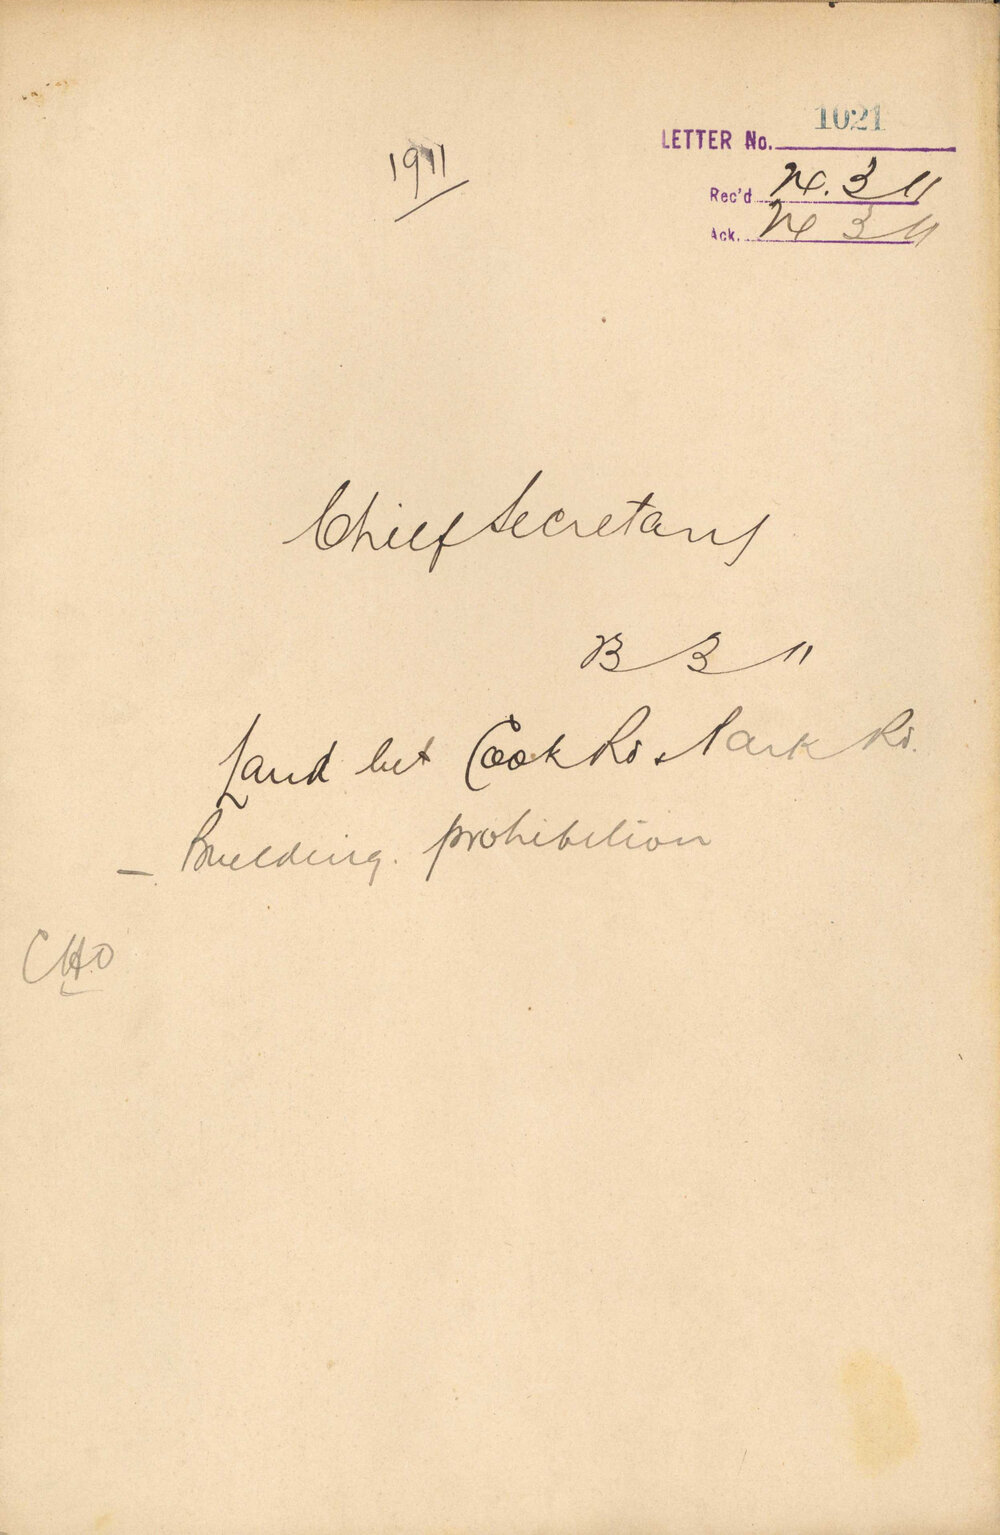 1911
LETTER No. 1021
Rec'd 14. 3 11
Ack. 14 3 11
Chief Secretary
13 3 11
Land bet Cook Rd & Park Rd.
– Building. prohibition
CHO